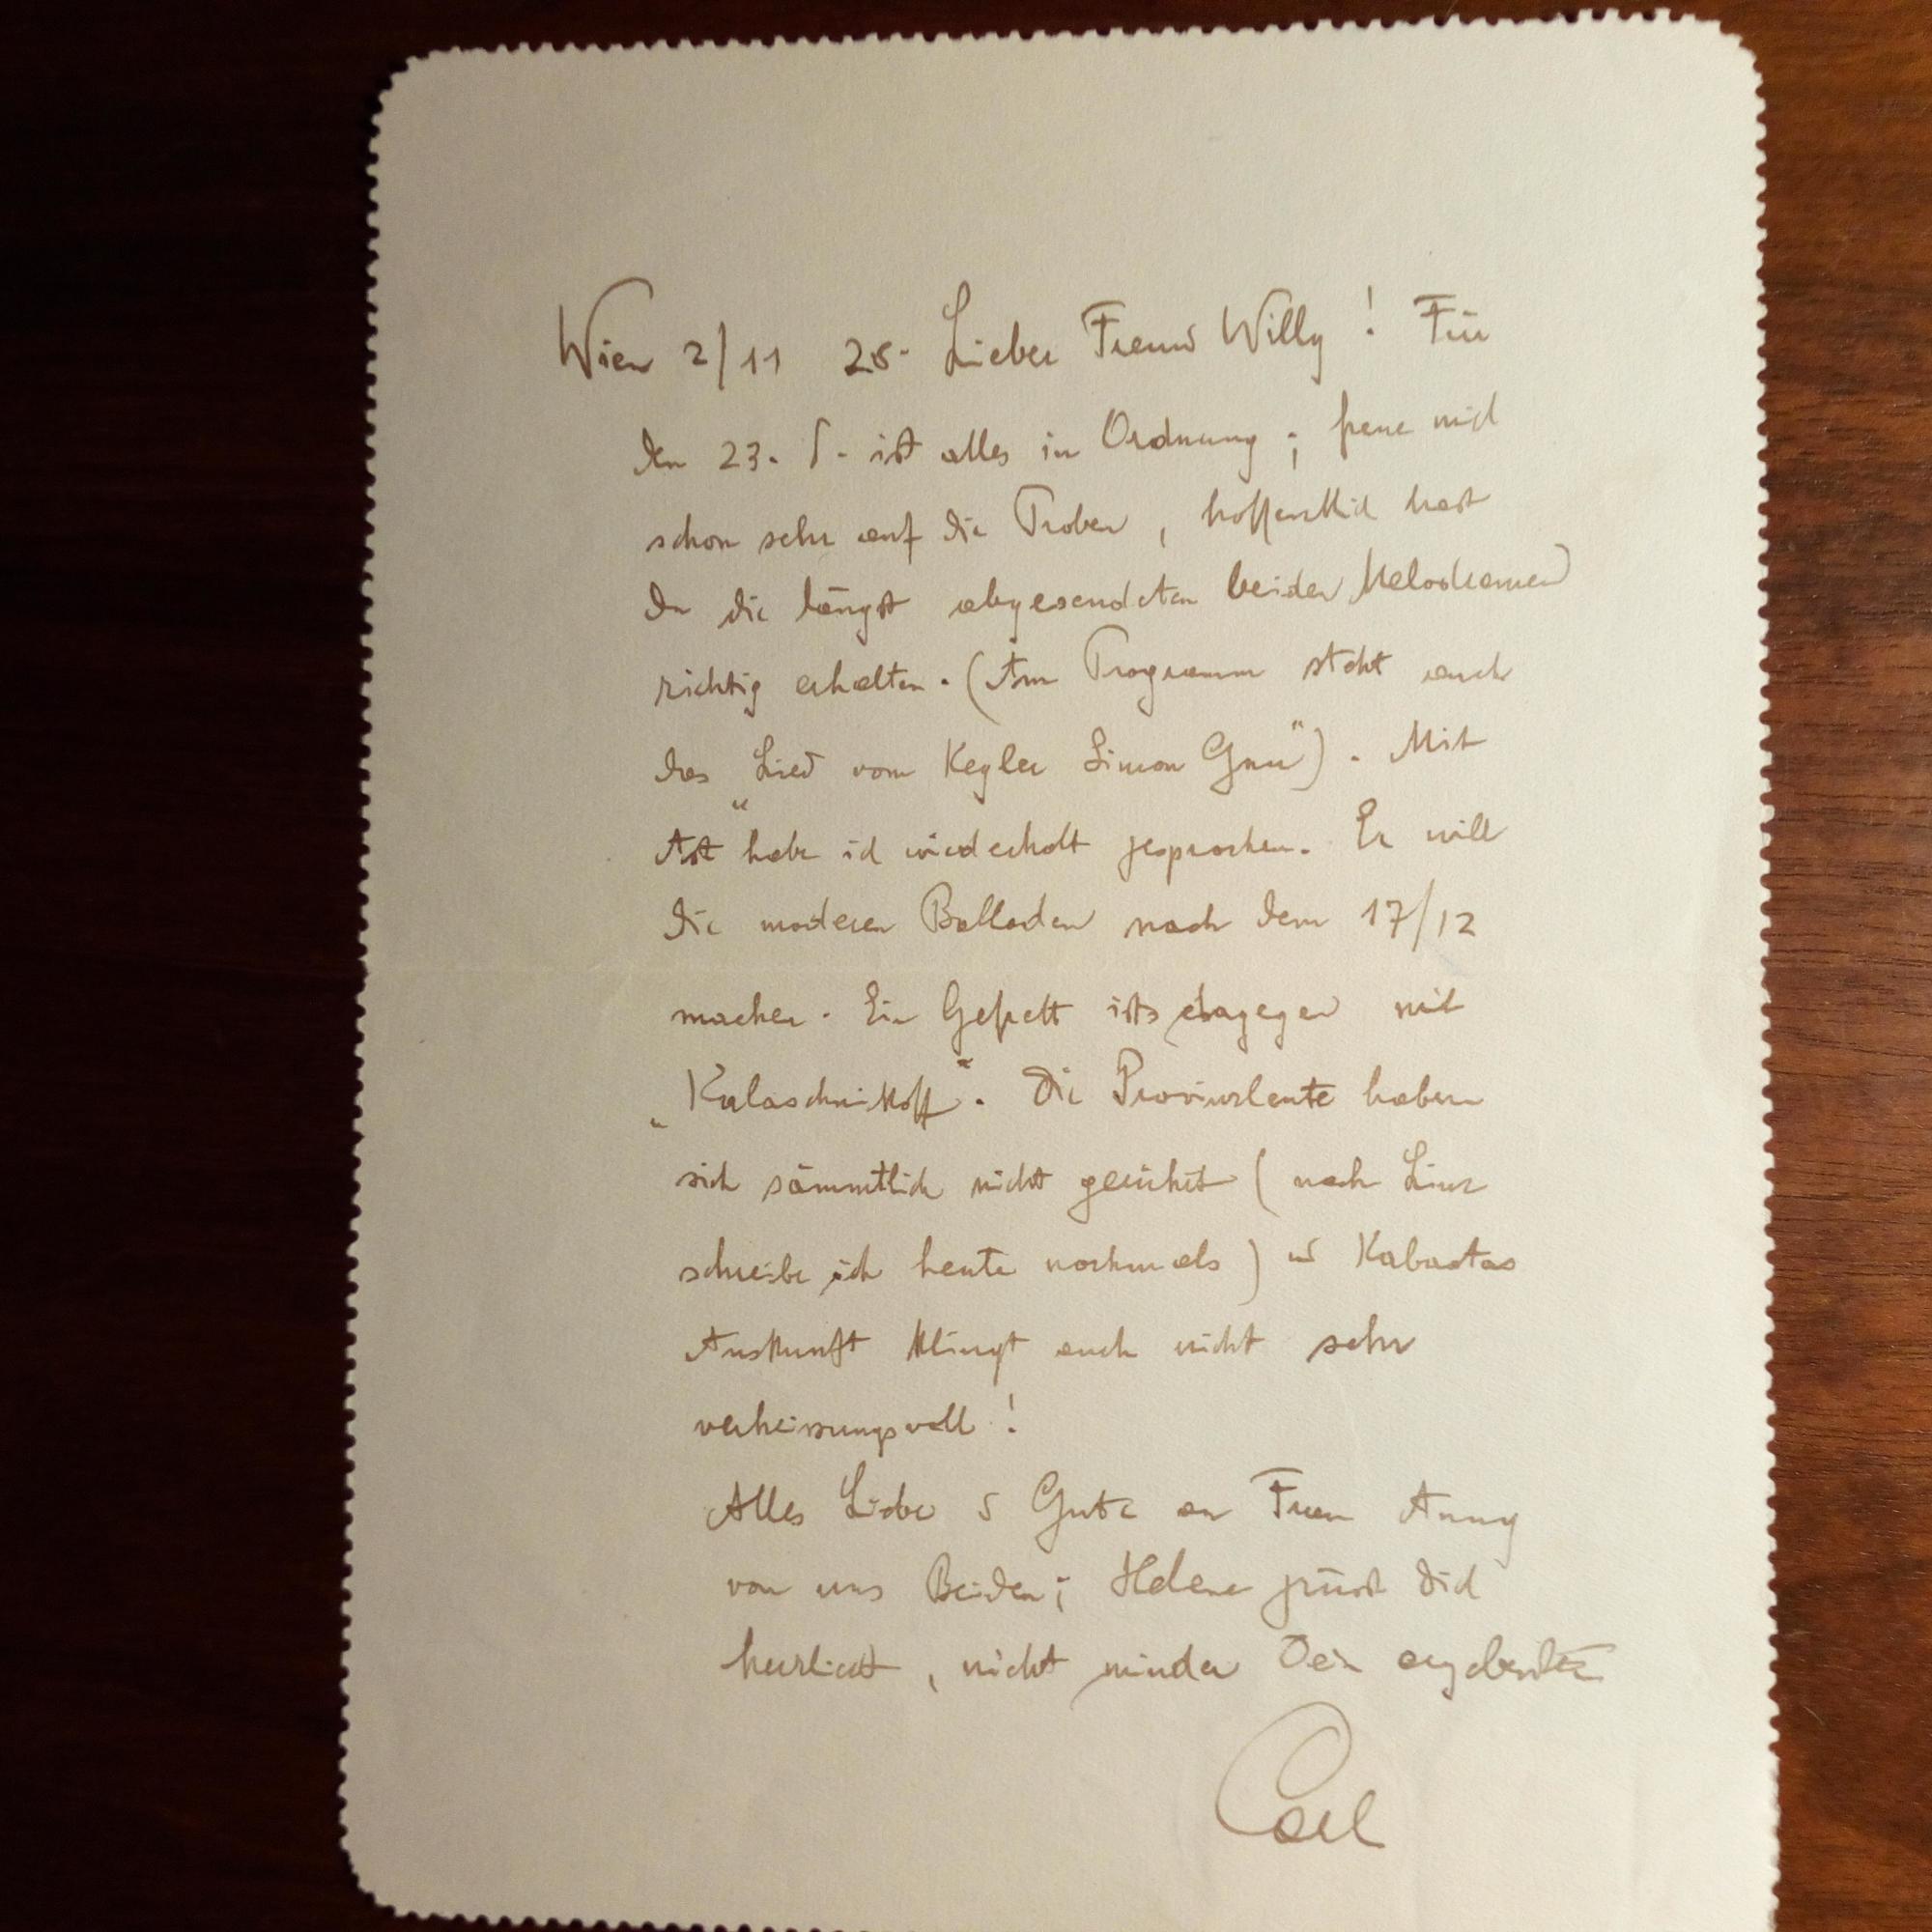 Wien 2/11 28. Lieber Freund Willy! Für
den 23. d. ist alles in Ordnung; freue mich
schon sehr auf die Proben, hoffentlich hast
Du die längst abgesendeten beiden Melodramen
richtig erhalten. (Am Programm steht auch
das „Lied vom Kegler Simon Gnu"). Mit
Ast habe ich wiederholt gesprochen. Er will
die moderen Balladen nach dem 17/12
machen. Ein Gefrett ists dagegen mit
„Kalaschnikoff". Die Provinzleute haben
sich sämmtlich nicht gerührt (nach Linz
schreibe ich heute nochmals) u Kabastas
Auskunft klingt auch nicht sehr
verheissungsvoll!
Alles Liebe & Gute an Frau Anny
von uns Beiden; Helene grüsst Dich
herzlichst, nicht minder Dein ergebenster
Carl